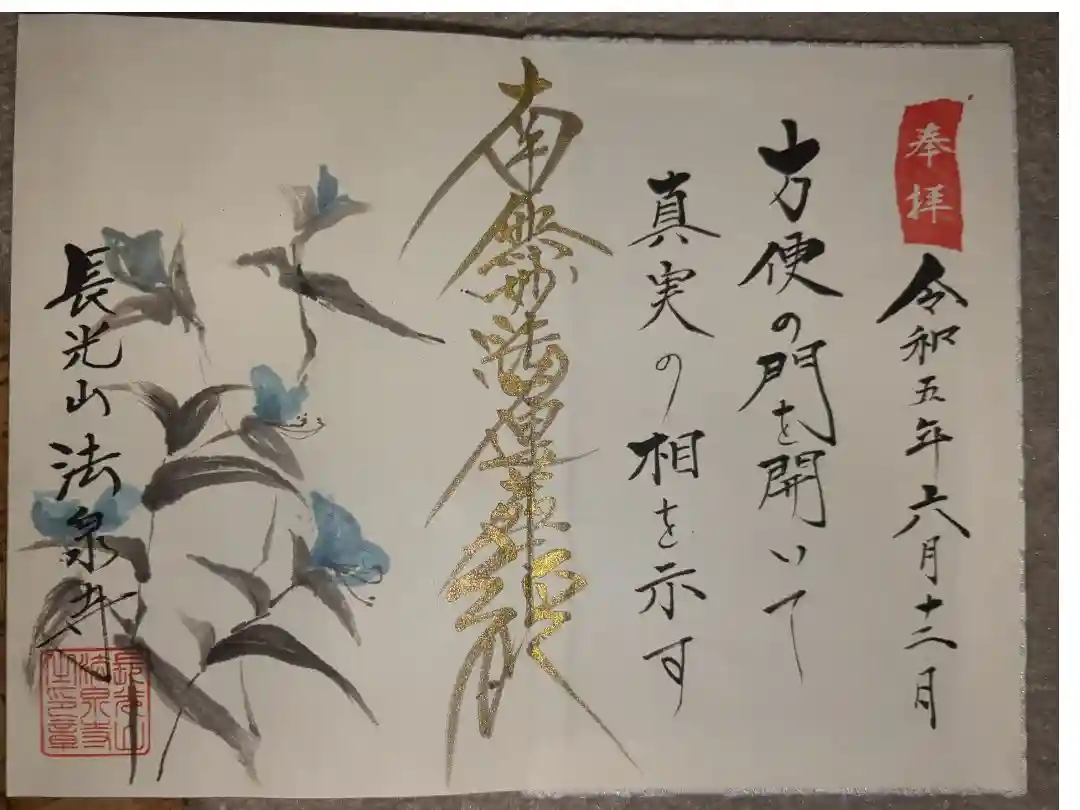 奉拝
令和五年六月十二日
方便の門を開いて
真実の相を示す
南無妙法蓮華経
長光山 法泉寺
長光山
法泉寺
之印章